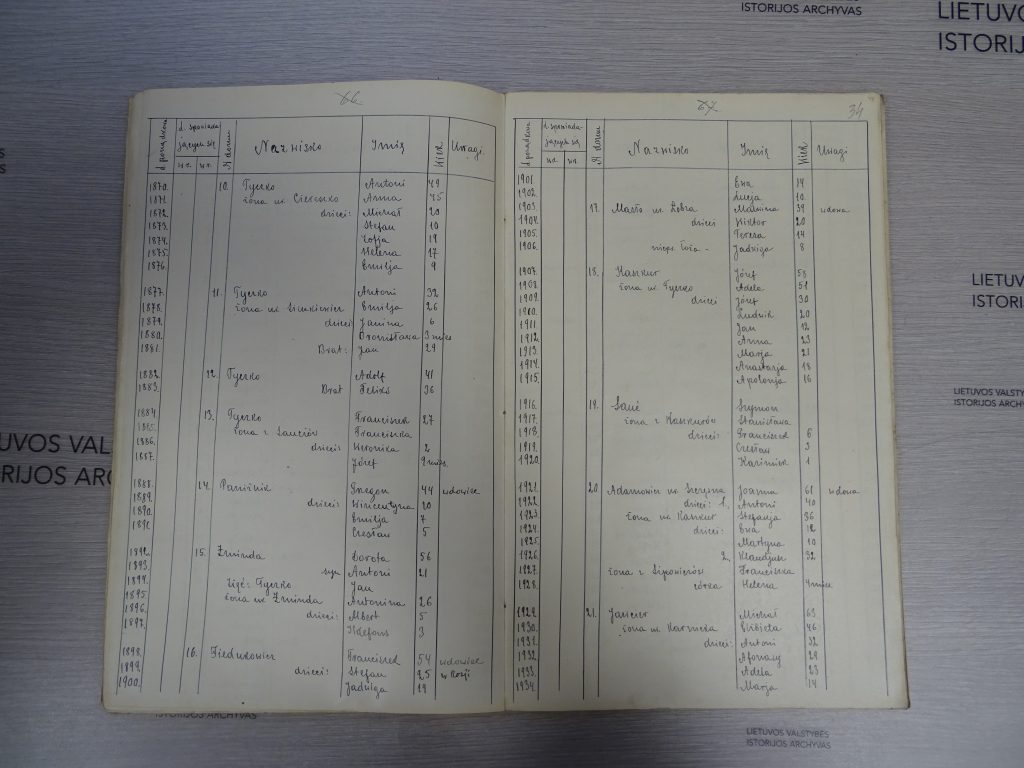 ISTORIJOS ARCHYVAS
LIETUVO
ISTORIJ
66
№ porządkowy
l. spowiadających się
№ domu
Nazwisko
Imię
Wiek
Uwagi
1870. 10. Tyczko Antoni 49
1871. żona ur. Anna 45
1872. dzieci: Michał 20
1873. Stefan 10
1874. Zofja 19
1875. Helena 17
1876. Emilja 9
1877. 11. Tyczko Antoni 32
1878. żona ur. Emilja 26
1879. dzieci: Janina 6
1880. Bronisława 3 mies
1881. Brat: Jan 29
1882. 12. Tyczko Adolf 41
1883. Brat Feliks 36
1884. 13. Tyczko Franciszek 27
1885. żona z Sanciów Franciszka
1886. dzieci: Weronika 2
1887. Józef 9 mies.
1888. 14. 44 udowiec
1889. dzieci: Wincentyna 20
1890. Emilja 7
1891. Czesław 5
1892. 15. Żminda Dorota 56
1893. syn Antoni 21
1894. Zięć: Tyczko Jan
1895 żona ur. Żminda Antonina 26
1896. dzieci: Albert 5
1897. Ildefons 3
1898. 16. Fiedukowicz Franciszek 54 udowiec
1899. dzieci: Stefan 25 w Rosji
1900. Jadwiga 19
67
34
l. spowiadających się
№ domu
Nazwisko
Imię
Wiek
Uwagi
1901. Ewa 14
1902. Łucja 10
1903. 17. Masło ur. Żebra Malwina 39 udowa
1904. dzieci Wiktor 20
1905. Teresa 14
1906. Jadwiga 8
1907. 18. Kaszkur Józef 58
1908. żona ur. Tyczko Adela 51
1909. dzieci Józef 30
1910. Ludwik 20
1911. Jan 12
1912. Anna 23
1913. Marja 21
1914. Anastazja 18
1915. Apolonja 16
1916. 19. Sanć Szymon
1917. żona z Kaszkurów Stanisława
1918. dzieci: Franciszek 6
1919. Czesław 3
1920. Kazimierz 1
1921. 20 Adamowicz ur. Joanna 61 udowa
1922. dzieci: 1. Antoni 40
1923. żona ur. Kaszkur Stefanja 36
1924. dzieci: Ewa 12
1925. Martyna 10
1926. 2. Klaudjusz 32
1927. żona z Franciszka
1928. córka Helena 4 mies
1929. 21. Michał 63
1930. żona ur. Elżbieta 46
1931. dzieci: Antoni 32
1932. 29
1933. Adela 23
1934. Marja 14
LIETUV
ISTORI
LIETUVOS VALSTYB
ISTORIJOS ARCHYV
UVOS VALST
ISTORIJOS AR
ISTORIJOS ARCHYVAS
LIETUVOS VALSTYBĖS
ISTORIJOS ARCHYVAS